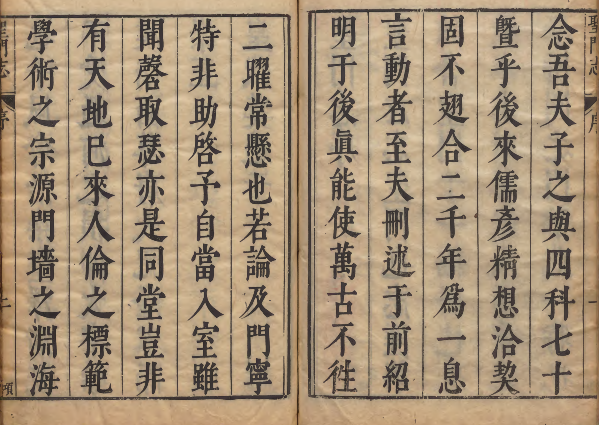 聖門志 序
念吾夫子之與四科七十
曁乎後來儒彥精想洽契
固不翅合二千年爲一息
言動者至夫刪述于前紹
明于後眞能使萬古不徃
二曜常懸也若論及門寧
特非助啓予自當入室雖
聞磬取瑟亦是同堂豈非
有天地巳來人倫之標範
學術之宗源門墻之淵海
聖門志 序